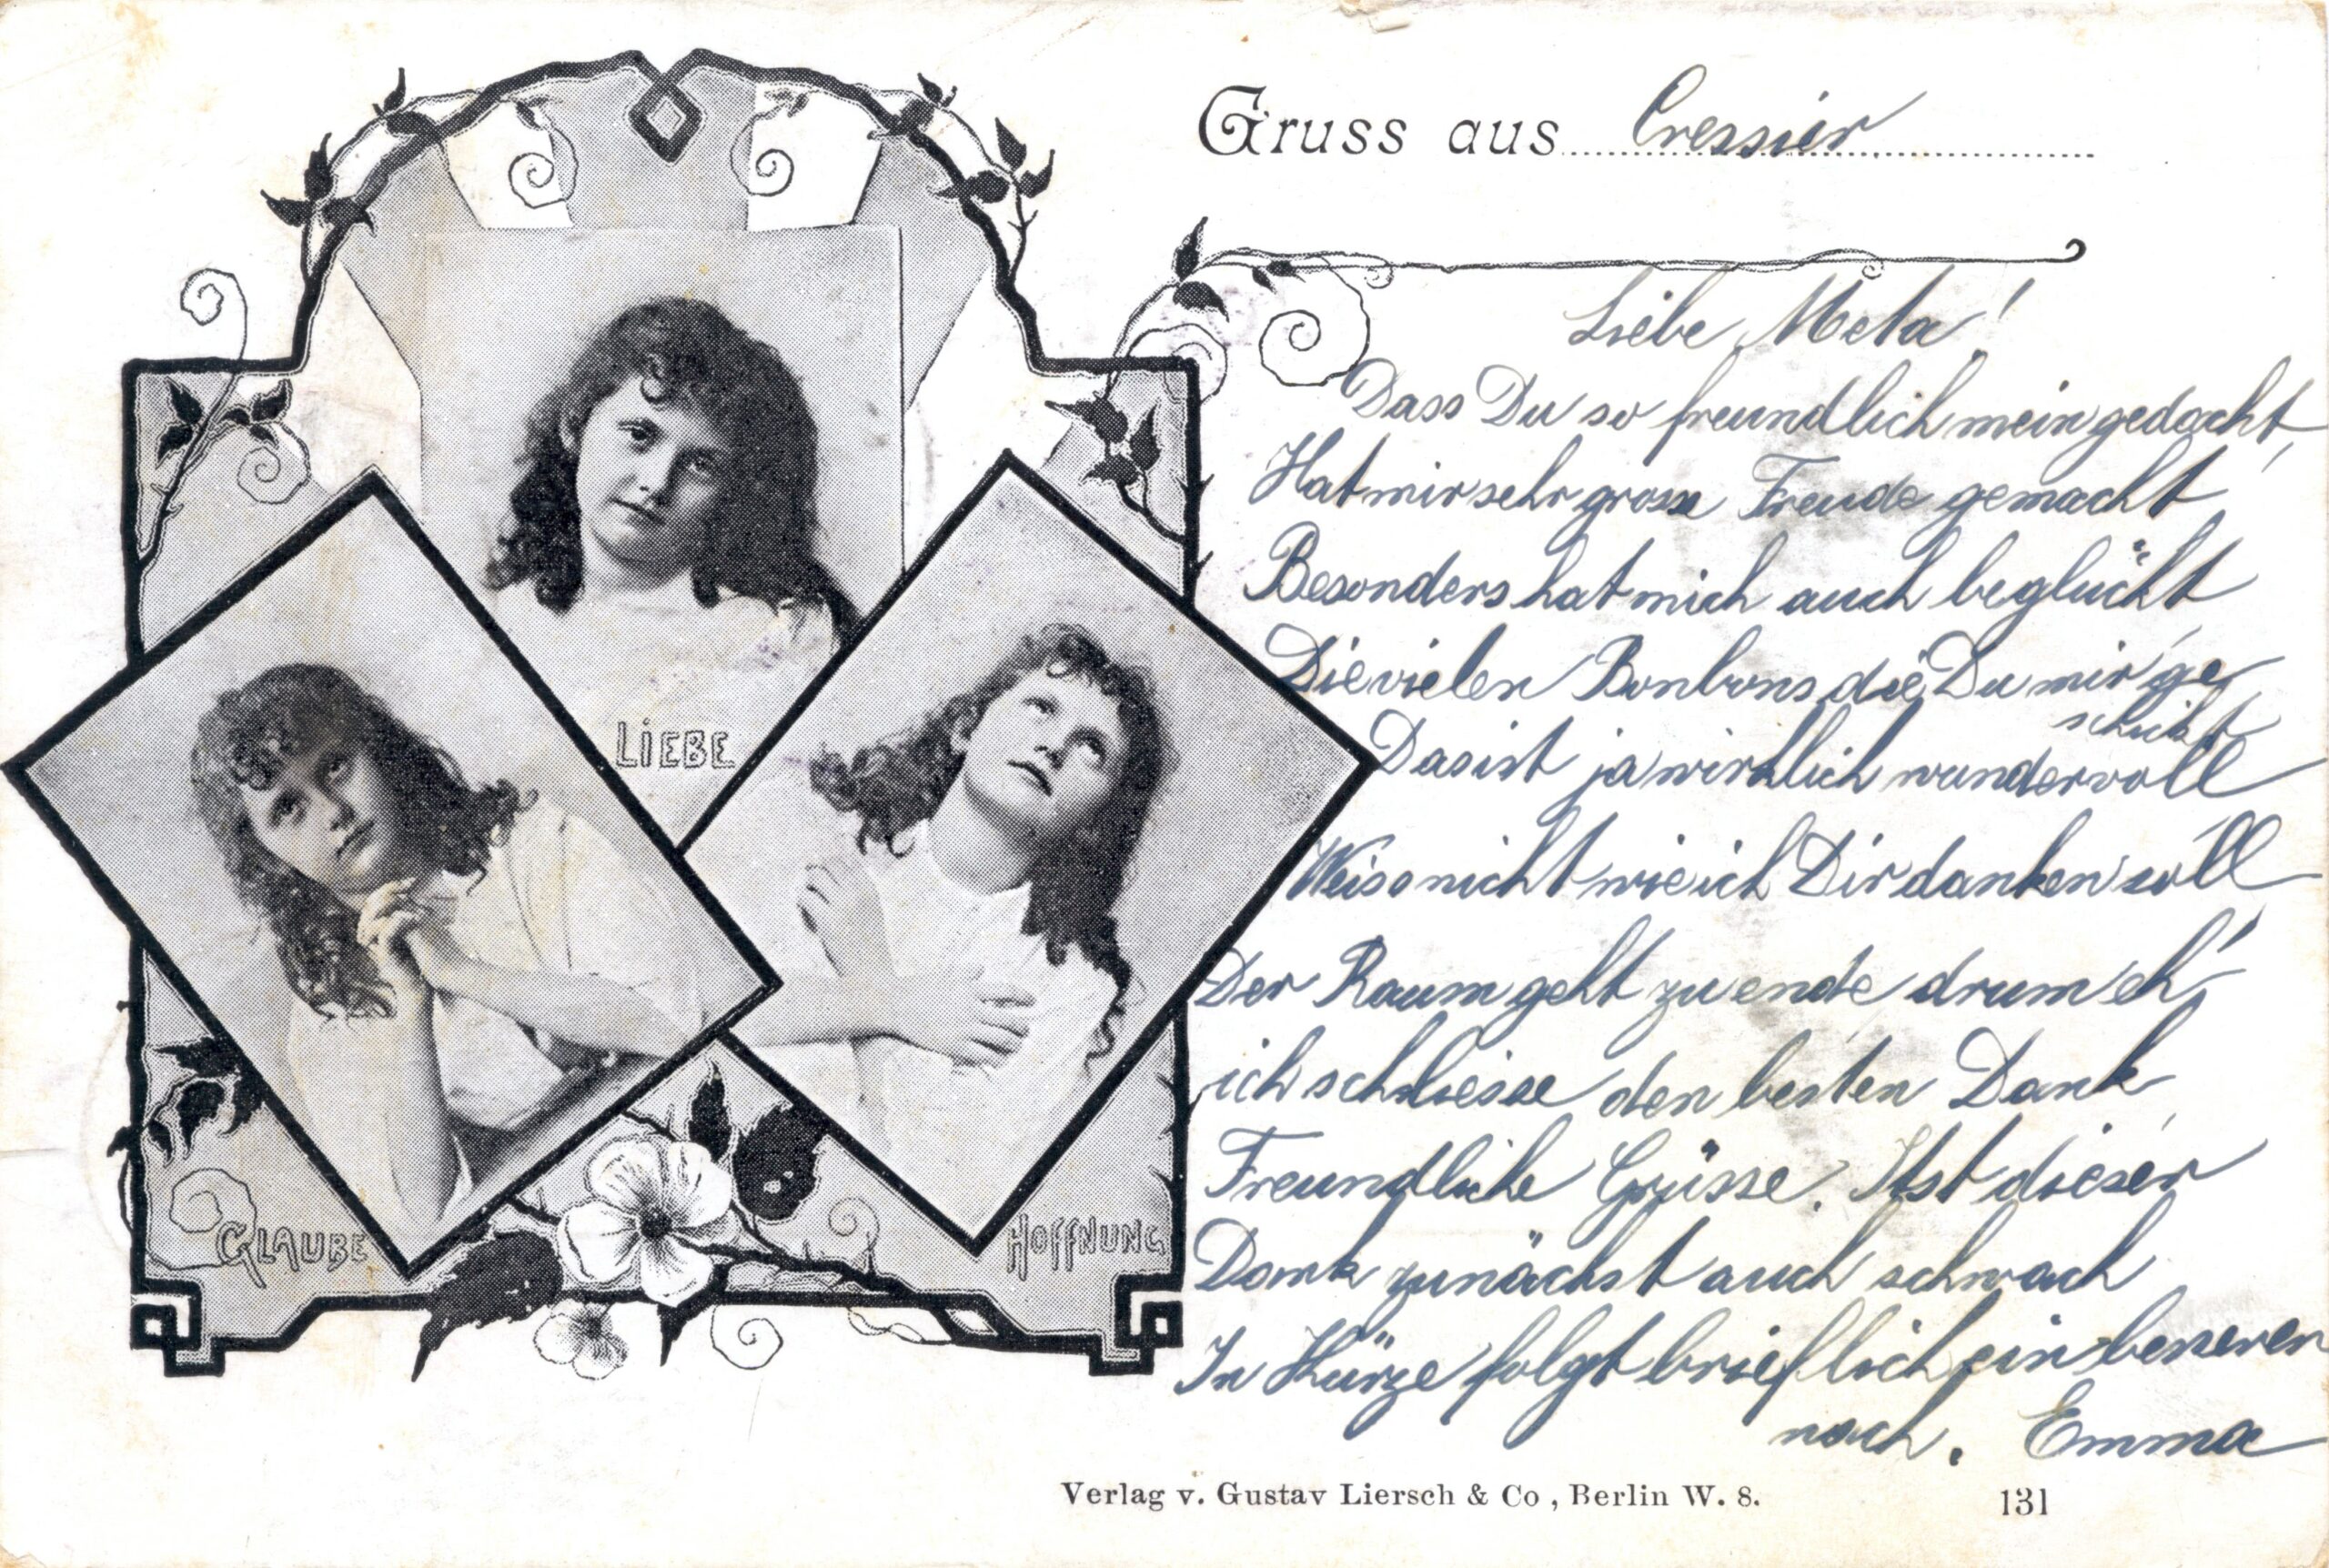 Gruss aus Cressier
Liebe Meta!
Dass Du so freundlich mein gedacht,
Hat mir sehr grosse Freude gemacht
Besonders hat mich auch beglückt
Die vielen Bonbons die Du mir ge
schickt
Das ist ja wirklich wundervoll
Weiss nicht wie ich Dir danken soll
Der Raum geht zu ende drum eh'
ich schliesse den besten Dank
Freundliche Grüsse. Ist dieser
Dank zunächst auch schwach
In Kürze folgt brieflich ein besserer
nach. Emma
LIEBE
GLAUBE
HOFFNUNG
Verlag v. Gustav Liersch & Co, Berlin W. 8.
131